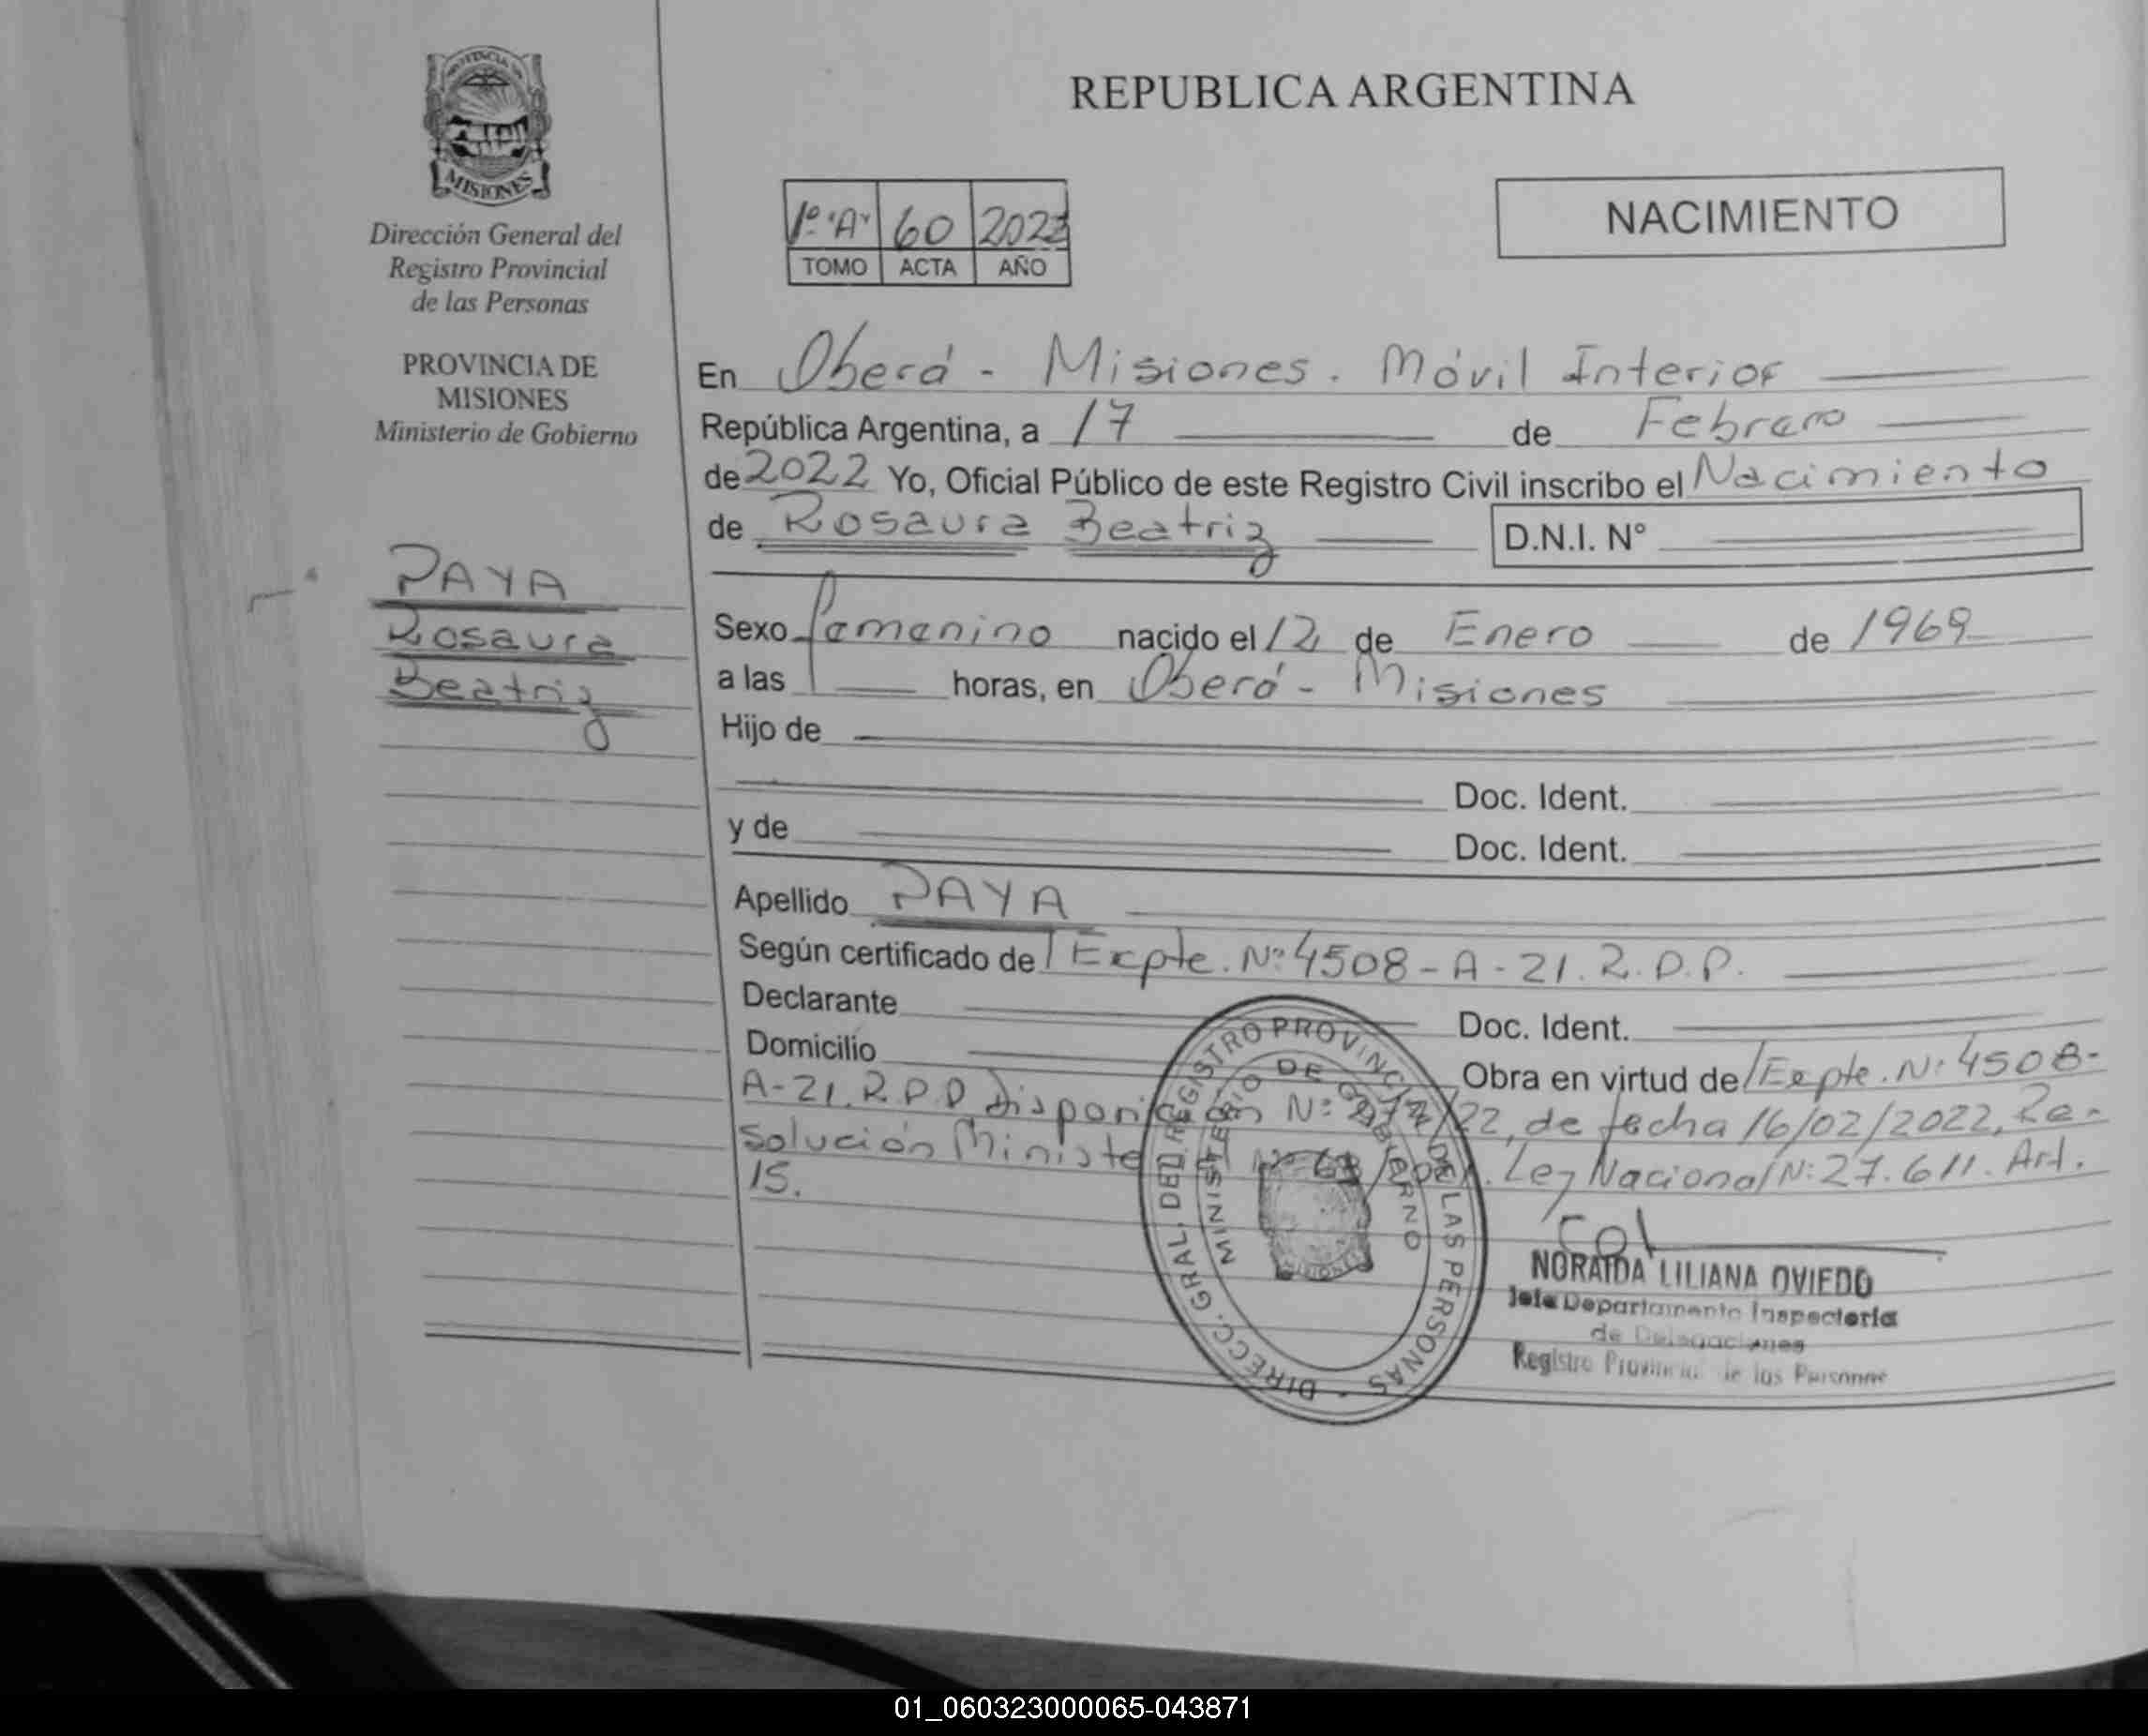 PROVINCIA DE
MISIONES
Dirección General del
Registro Provincial
de las Personas
PROVINCIA DE
MISIONES
Ministerio de Gobierno
PAYA
Rosaura
Beatriz
REPUBLICA ARGENTINA
1º "A" 60 2022
TOMO ACTA AÑO
NACIMIENTO
En Oberá - Misiones. Móvil Interior
República Argentina, a 17 de Febrero
de 2022 Yo, Oficial Público de este Registro Civil inscribo el Nacimiento
de Rosaura Beatriz D.N.I. N°
Sexo femenino nacido el 12 de Enero de 1969
a las horas, en Oberá - Misiones
Hijo de
Doc. Ident.
y de
Doc. Ident.
Apellido PAYA
Según certificado de Expte. Nº 4508-A-21.R.P.P.
Declarante
Doc. Ident.
Domicilio
Obra en virtud de Expte. Nº 4508-
A-21.R.P.P Disposición Nº /22, de fecha 16/02/2022, Re-
solución Ministe Nº Ley Nacional Nº 27.611. Art.
15.
DIRECC. GRAL. DEL REGISTRO PROVINCIAL DE LAS PERSONAS -
MINISTERIO DE GOBIERNO
MISIONES
NORAIDA LILIANA OVIEDO
Jefe Departamento Inspectoría
de Delegaciones
Registro Provincial de las Personas
01_060323000065-043871